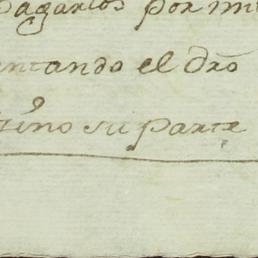 pagarlos por mi
ntando el dro
tino su parte